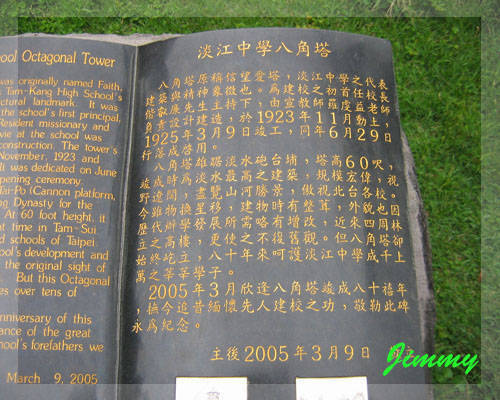 ool Octagonal Tower
was originally named Faith,
Tam-Kang High School's
ctural landmark. It was
the school's first principal,
Resident missionary and
vie at the school was
construction. The tower's
November, 1923 and
It was dedicated on June
pening ceremony.
Tai-Po (Cannon platform,
ng Dynasty for the
At 60 foot height, it
t time in Tam-Sui
d schools of Taipei
ool's development and
the original sight of
But this Octagonal
es over tens of
nniversary of this
ance of the great
hool's forefathers we
March 9, 2005
淡江中學八角塔
八角塔原稱信望愛塔,淡江中學之代表
建築與精神象徵也。為建校之初首任校長
偕叡廉先生主持下,由宣教師羅虔益老師
負責設計建造,於1923年11月動土,
1925年3月9日竣工,同年6月29日
行落成啓用。
八角塔雄踞淡水砲台埔,塔高60呎,
竣成時為淡水最高之建築,規模宏偉,視
野遼闊,盡覽山河勝景,傲視北台各校。
今雖物換星移,建物時有整葺,外貌也因
歷代辦學發展所需略有增改,近來四周林
立之高樓,更使之不復舊觀。但八角塔卻
始終屹立,八十年來呵護淡江中學成千上
萬之莘莘學子。
2005年3月欣逢八角塔竣成八十禧年
,撫今追昔緬懷先人建校之功,敬勒此碑
永爲紀念。
主後2005年3月9日
Jimmy